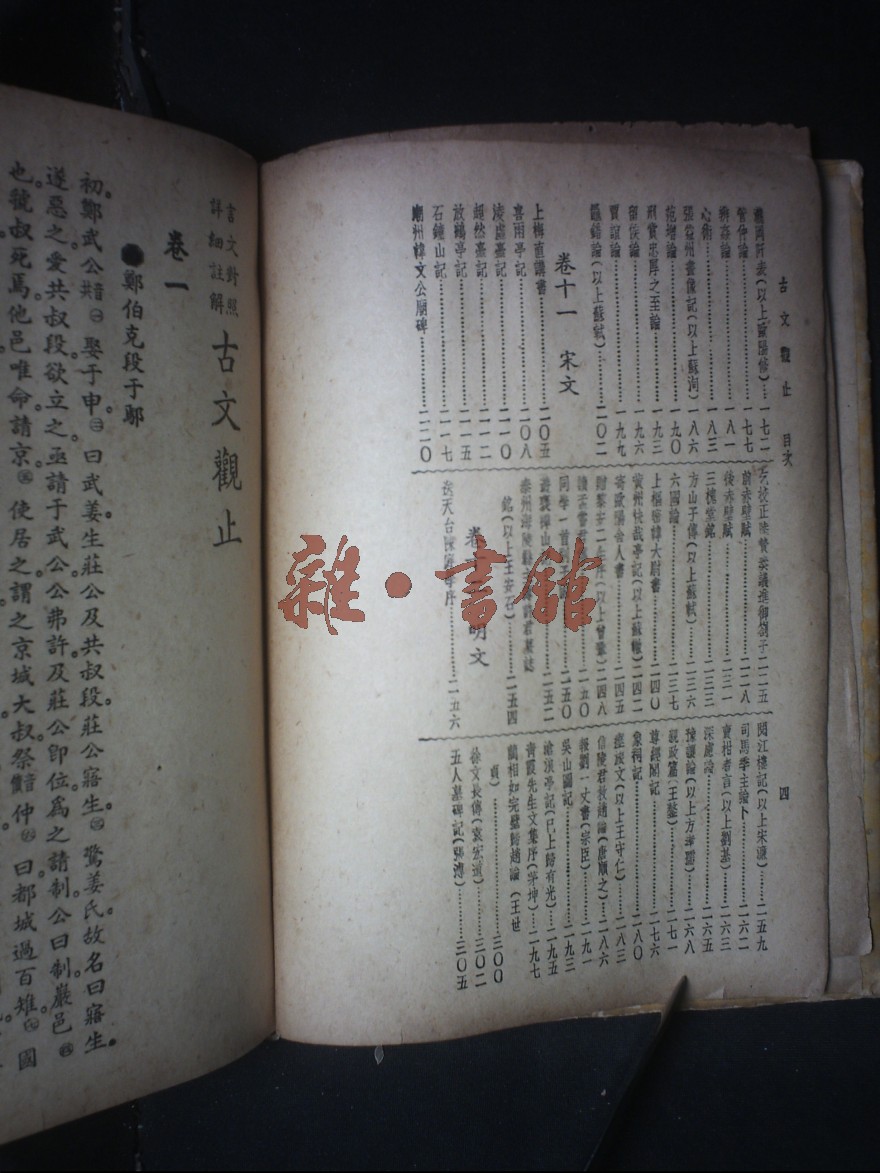 古文觀止 目次
四
瀧岡阡表(以上歐陽修)…一七二
管仲論…一七七
辨姦論…一八一
心術…一八三
張益州畫像記(以上蘇洵)一八六
范增論…一九〇
刑賞忠厚之至論…一九三
留侯論…一九六
賈誼論…一九九
鼂錯論(以上蘇軾)…二〇二
卷十一 宋文
上梅直講書…二〇五
喜雨亭記…二〇八
凌虛臺記…二一〇
超然臺記…二一二
放鶴亭記…二一五
石鐘山記…二一七
潮州韓文公廟碑…二二〇
乞校正陸贄奏議進御劄子二二五
前赤壁賦…二二八
後赤壁賦…二三一
三槐堂銘…二三三
方山子傳(以上蘇軾)…二三六
六國論…二三七
上樞密韓太尉書…二四〇
黃州快哉亭記(以上蘇轍)二四二
寄歐陽舍人書…二四五
贈黎安二生序(以上曾鞏)二四八
讀孟嘗君…二五〇
同學一首別子固…二五〇
遊褒禪山
泰州海陵縣主簿許君墓誌
銘(以上王安石)…二五四
卷十二 明文
送天台陳庭學序…二五六
閱江樓記(以上宋濂)…二五九
司馬季主論卜…二六二
賣柑者言(以上劉基)…二六三
深慮論…二六五
豫讓論(以上方孝孺)…二六八
親政篇(王鏊)…二七一
尊經閣記…二七六
象祠記…二八〇
瘞旅文(以上王守仁)…二八三
信陵君救趙論(唐順之)…二八六
報劉一丈書(宗臣)…二九一
吳山圖記…二九三
滄浪亭記(已上歸有光)…二九五
青霞先生文集序(茅坤)…二九七
藺相如完璧歸趙論(王世
貞)…三〇〇
徐文長傳(袁宏道)…三〇二
五人墓碑記(張溥)…三〇五
言文對照
詳細註解
古文觀止
卷一
●鄭伯克段于鄢
初。鄭武公㊀娶于申㊁曰武姜生莊公及共叔段莊公寤生。㊂驚姜氏故名曰寤生。
遂惡之愛共叔段欲立之亟請于武公公弗許及莊公卽位爲之請制公曰制巖邑
也。虢叔死焉他邑唯命請京。使居之謂之京城大叔祭仲曰都城過百雉。國
雜·書館